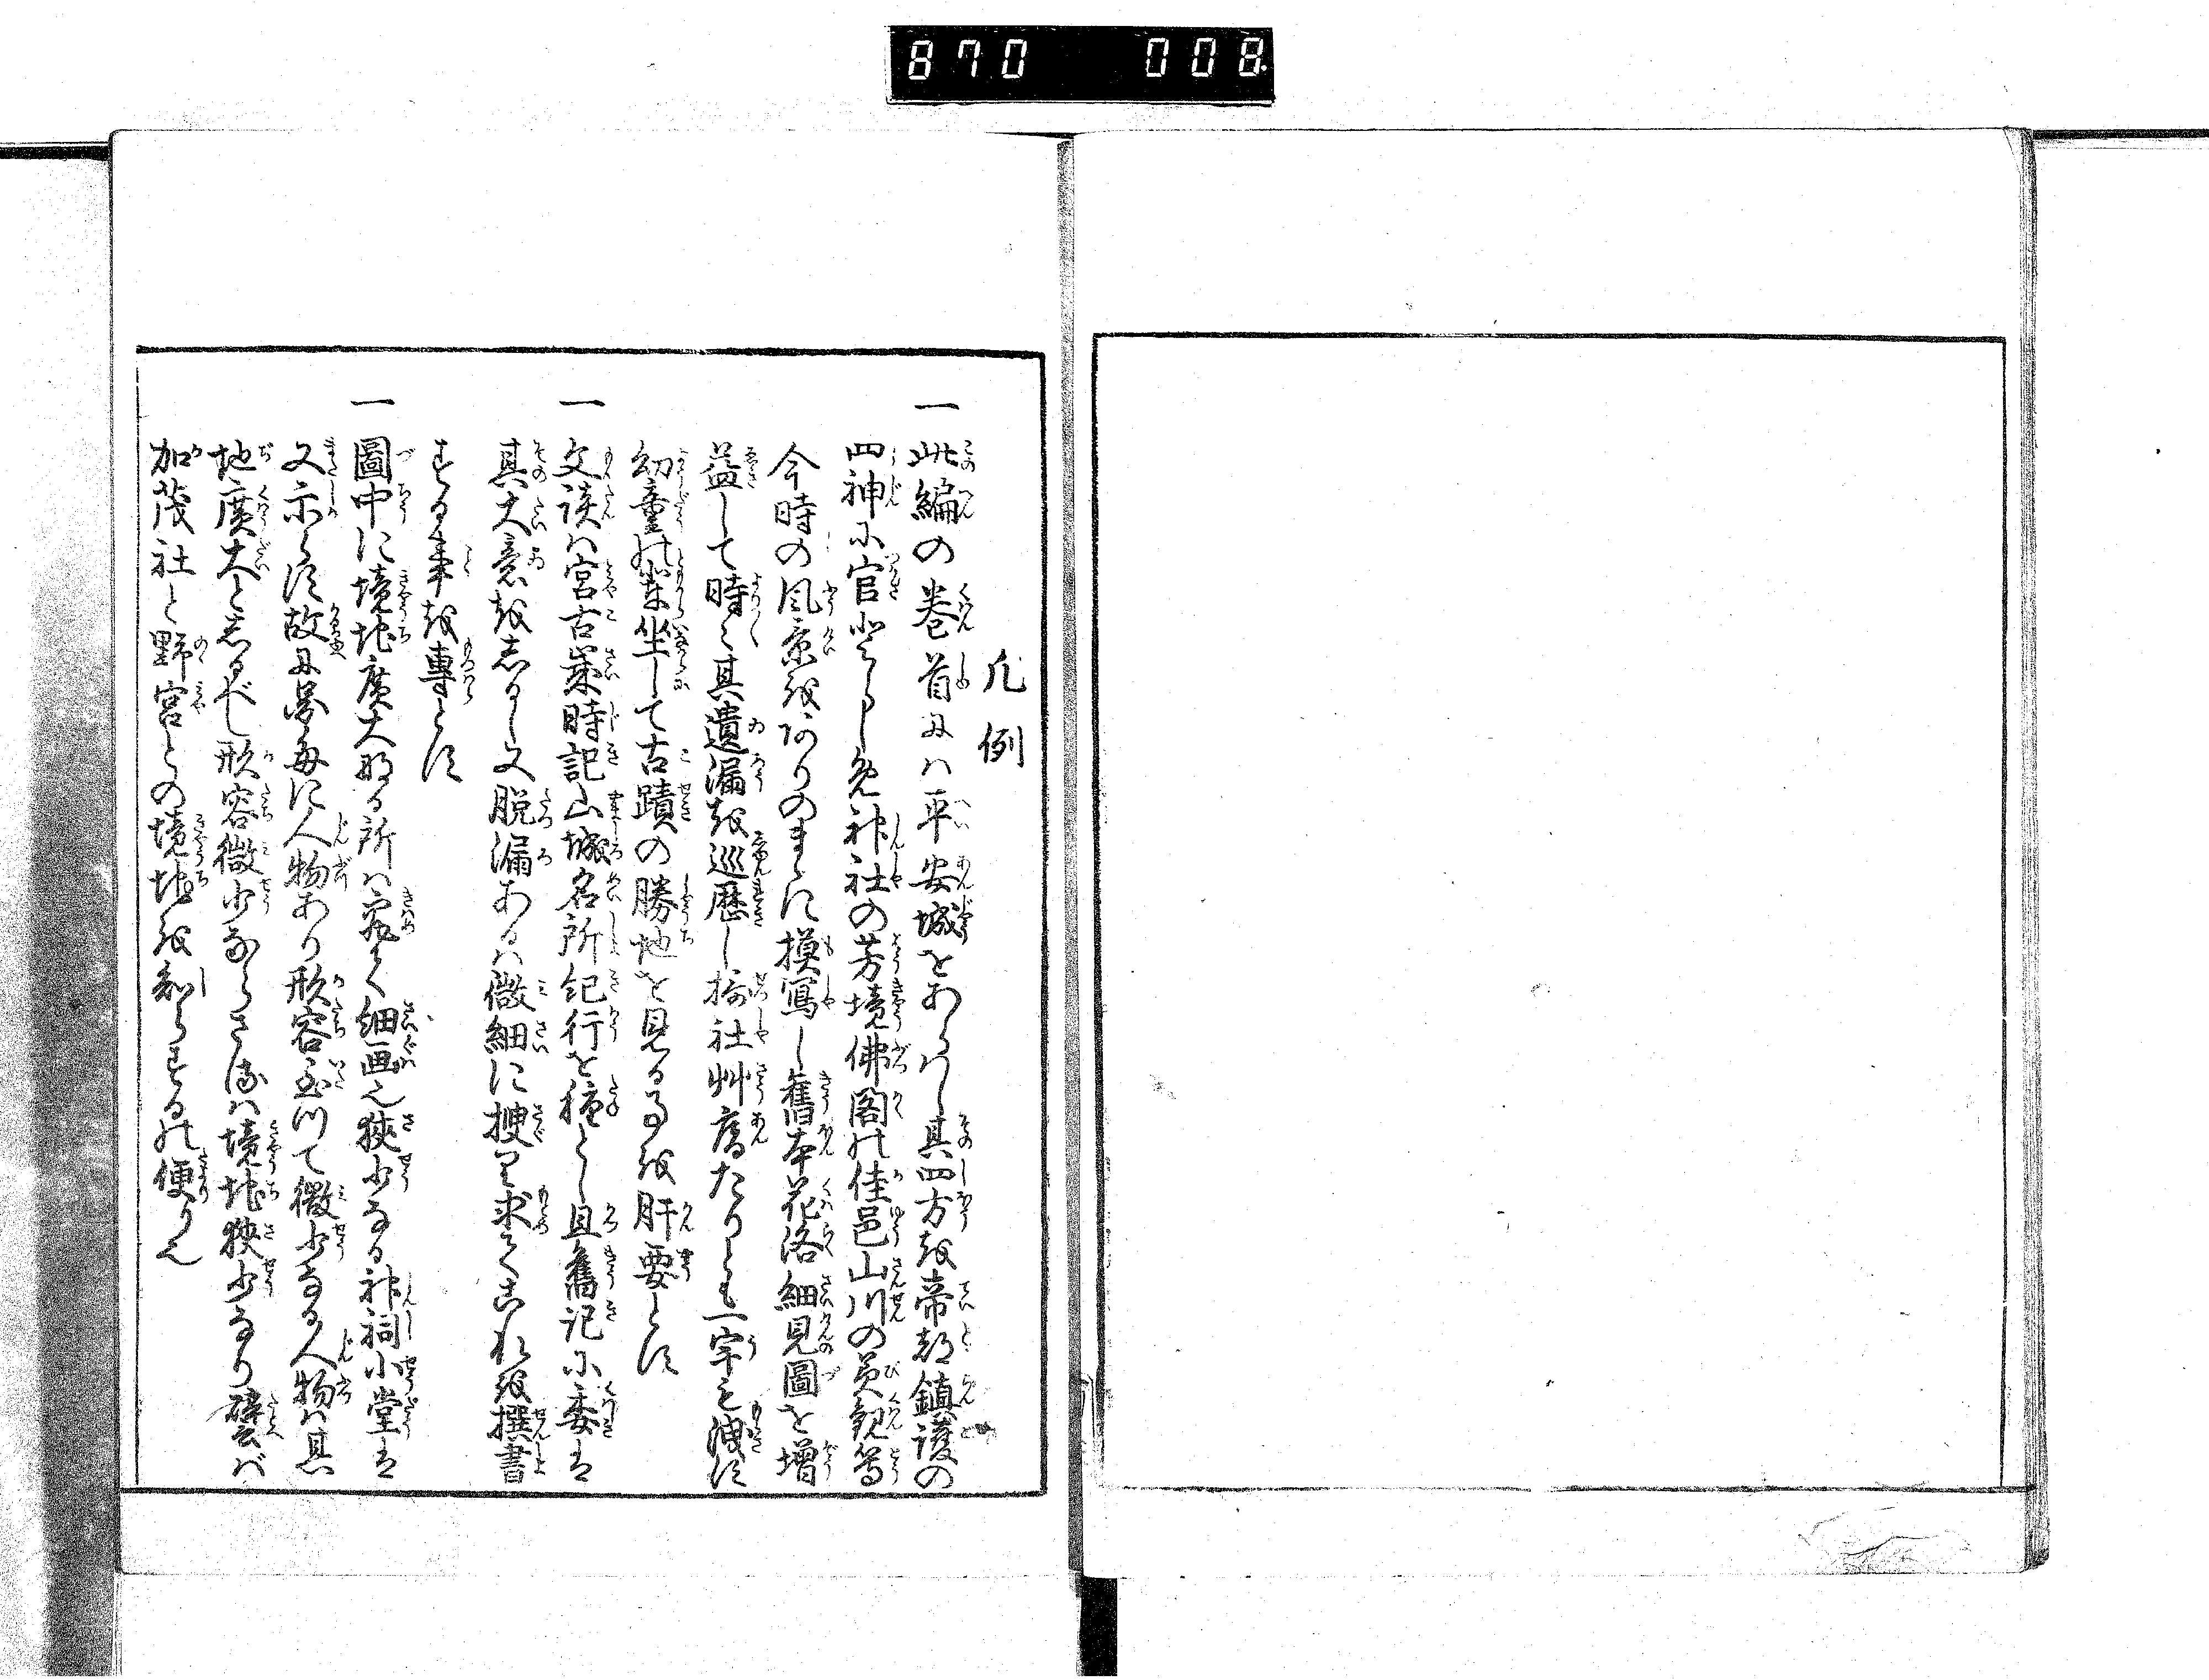 870 008
凡例
一 此編の巻首には平安城をあらはし其四方を帝都鎮護の
四神に官どらしめ神社の芳境佛閣の佳邑山川の美観等
今時の風景をありのまゝに摸寫し舊本花洛細見圖を増
益して時々其遺漏を巡歴し摂社艸菴たりとも一宇も洩さず
幼童の輩坐して古蹟の勝地を見る事を肝要とす
一 文談は宮古歳時記山城名所記行を種とし且舊記に委きは
其大意を志るし又脱漏あるは微細に捜り求てこれを撰書
する事を專とす
一 圖中に境地廣大なる所は究て細画也狹少なる神祠小堂は
又示らず故に畧毎に人物あり形容至つて微少なる人物は其
地廣大と志るべし形容微少ならざるは境地狹少なり譬ば
加茂社と野宮との境地を知らするの便り也